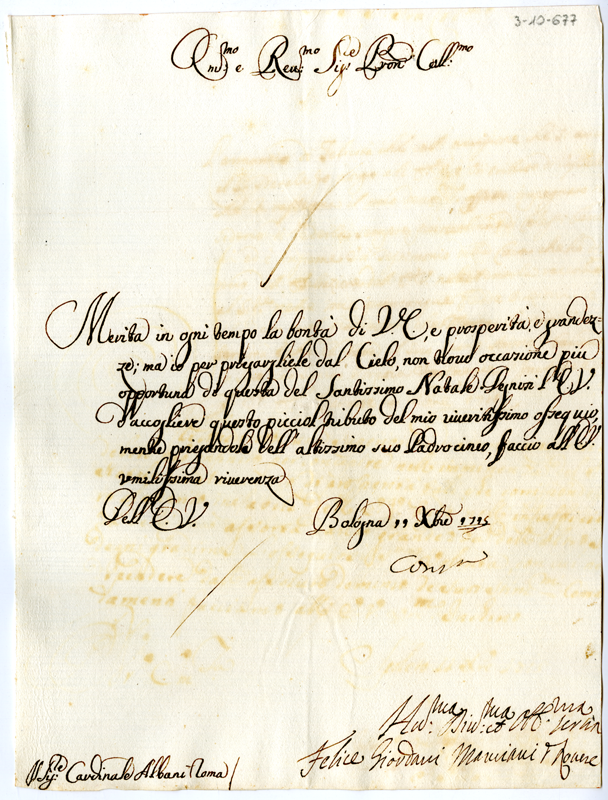 3-10-677
Em:mo e Reu:mo Sig:re Pron Coll:mo
Merita in ogni tempo la bontà di V.E., e prosperità, e grandez-
ze; ma io per pregargliele dal Cielo, non trouo occazione più
opportuna di questa del Santissimo Natale. Degnisi l'E.V.
d'accogliere questo picciol tributo del mio riueritissimo ossequio,
mentre pregandola dell'altissimo suo Padrocineo, faccio all'E.V.
vmilissima riuerenza
Dell'E.V. Bologna 11 Xbre 1715
Hu:ma Diu:ma et Obb:ma Seru:
Felice Giouani Mamiani d Rouere
Sig:re Cardinale Albani Roma